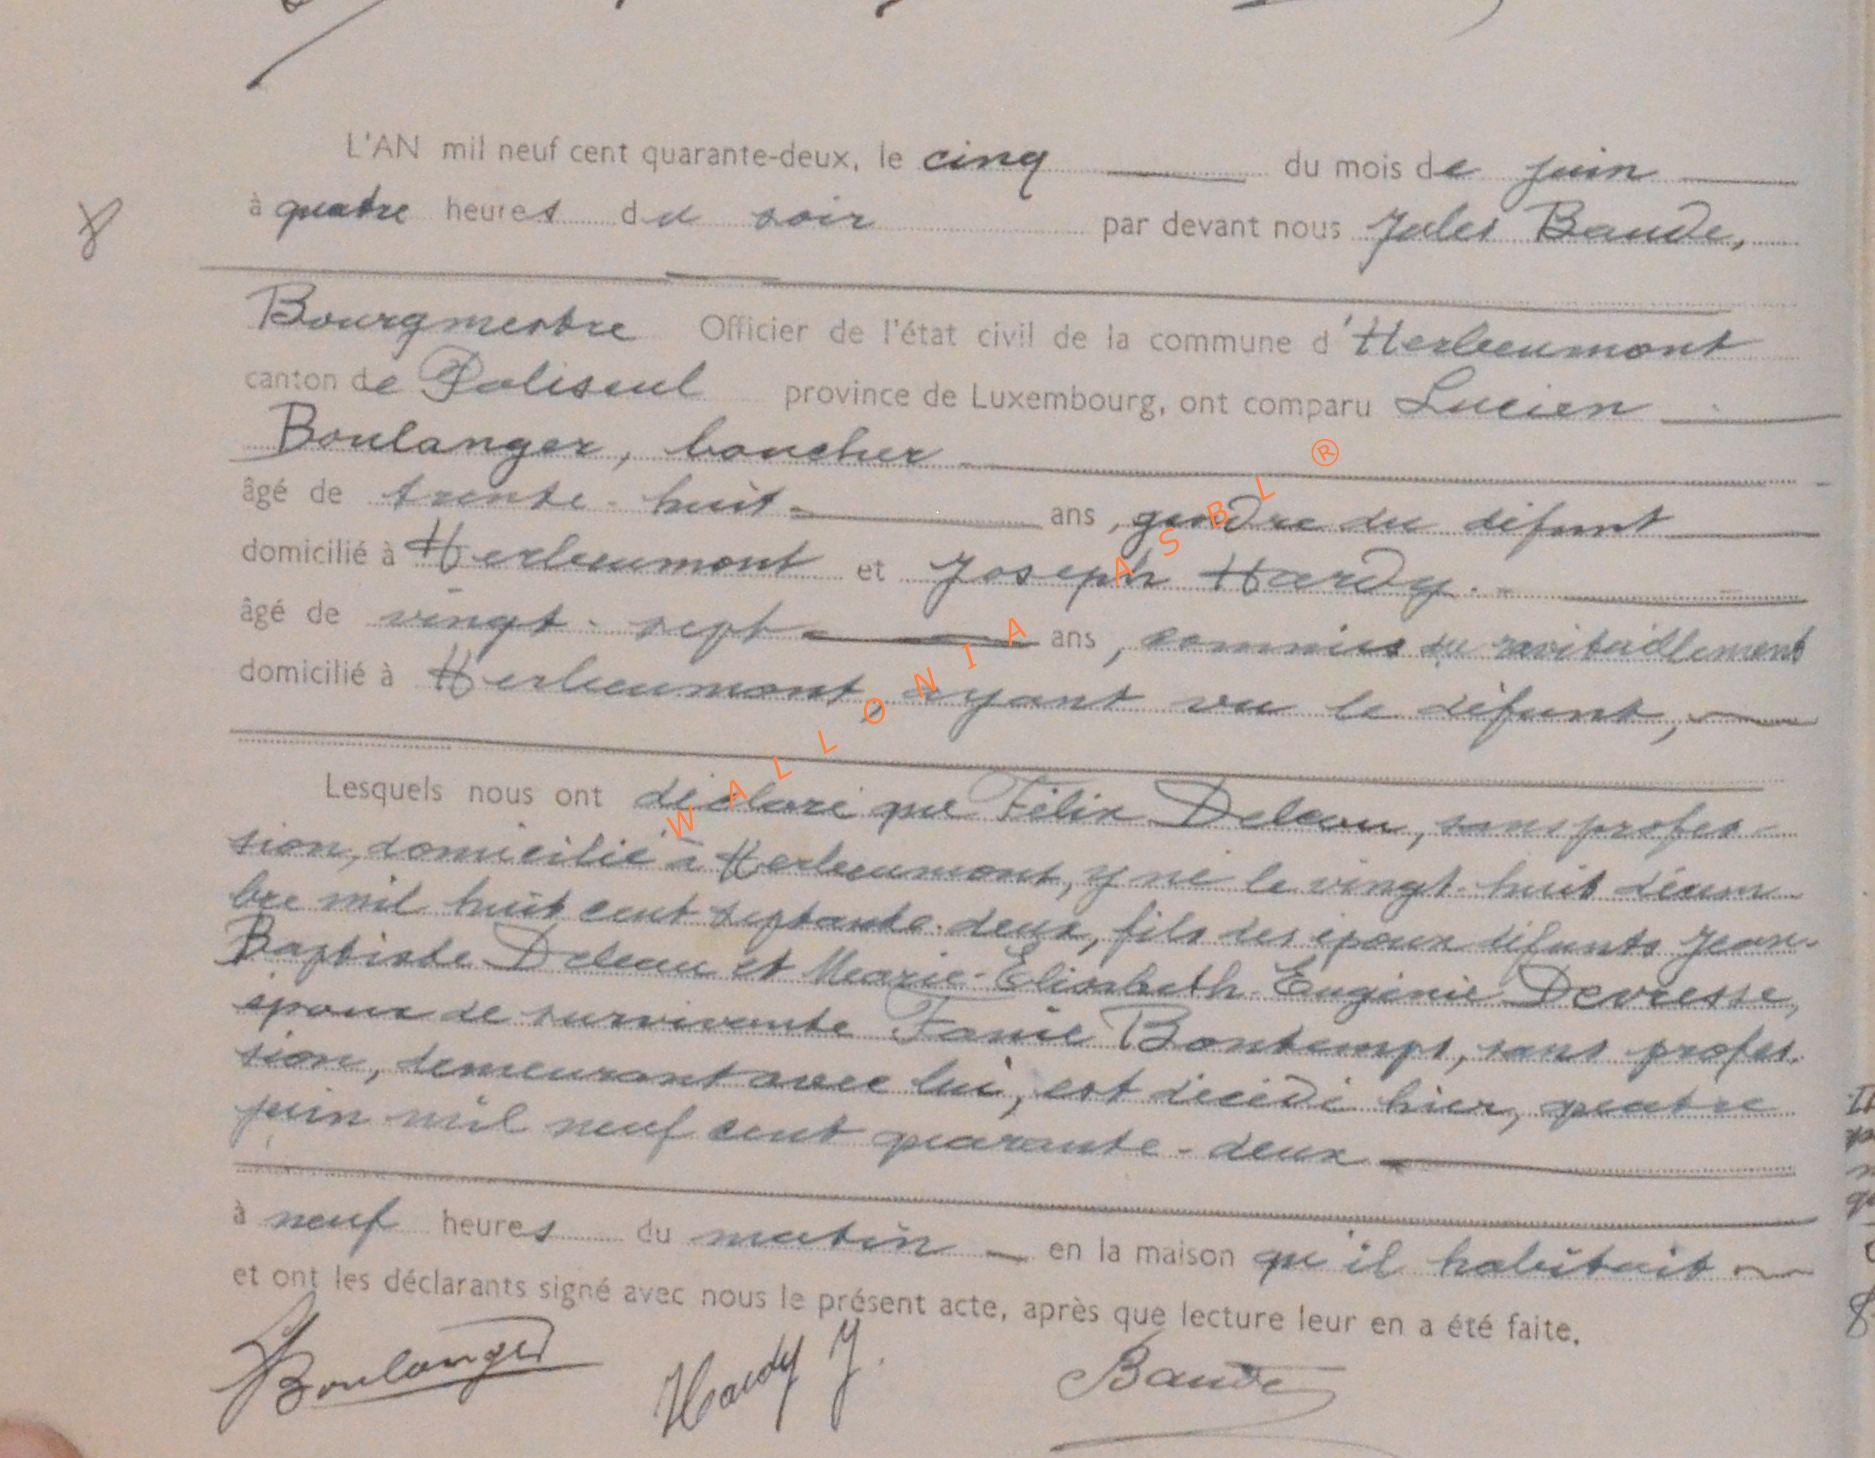 L'AN mil neuf cent quarante-deux, le cinq du mois de juin
8 à quatre heures du soir par devant nous Jules Baude,
Bourgmestre Officier de l'état civil de la commune d'Herbeumont
canton de Paliseul province de Luxembourg, ont comparu Lucien
Boulanger, boucher
âgé de trente-huit ans, gendre du défunt
domicilié à Herbeumont et Joseph Hardy.
âgé de vingt-sept ans, commis du ravitaillement
domicilié à Herbeumont, ayant vu le défunt,
Lesquels nous ont déclaré que Félix Deleau, sans profes-
sion, domicilié à Herbeumont, y né le vingt-huit décem-
bre mil huit cent septante-deux, fils des époux défunts Jean-
Baptiste Deleau et Marie-Elisabeth-Eugénie Devresse,
époux de survivante Fanie Bontemps, sans profes-
sion, demeurant avec lui, est décédé hier, quatre
juin mil neuf cent quarante-deux
à neuf heures du matin en la maison qu'il habitait
et ont les déclarants signé avec nous le présent acte, après que lecture leur en a été faite.
Boulanger Hardy J. Baude
WALLONIA ASBL ®